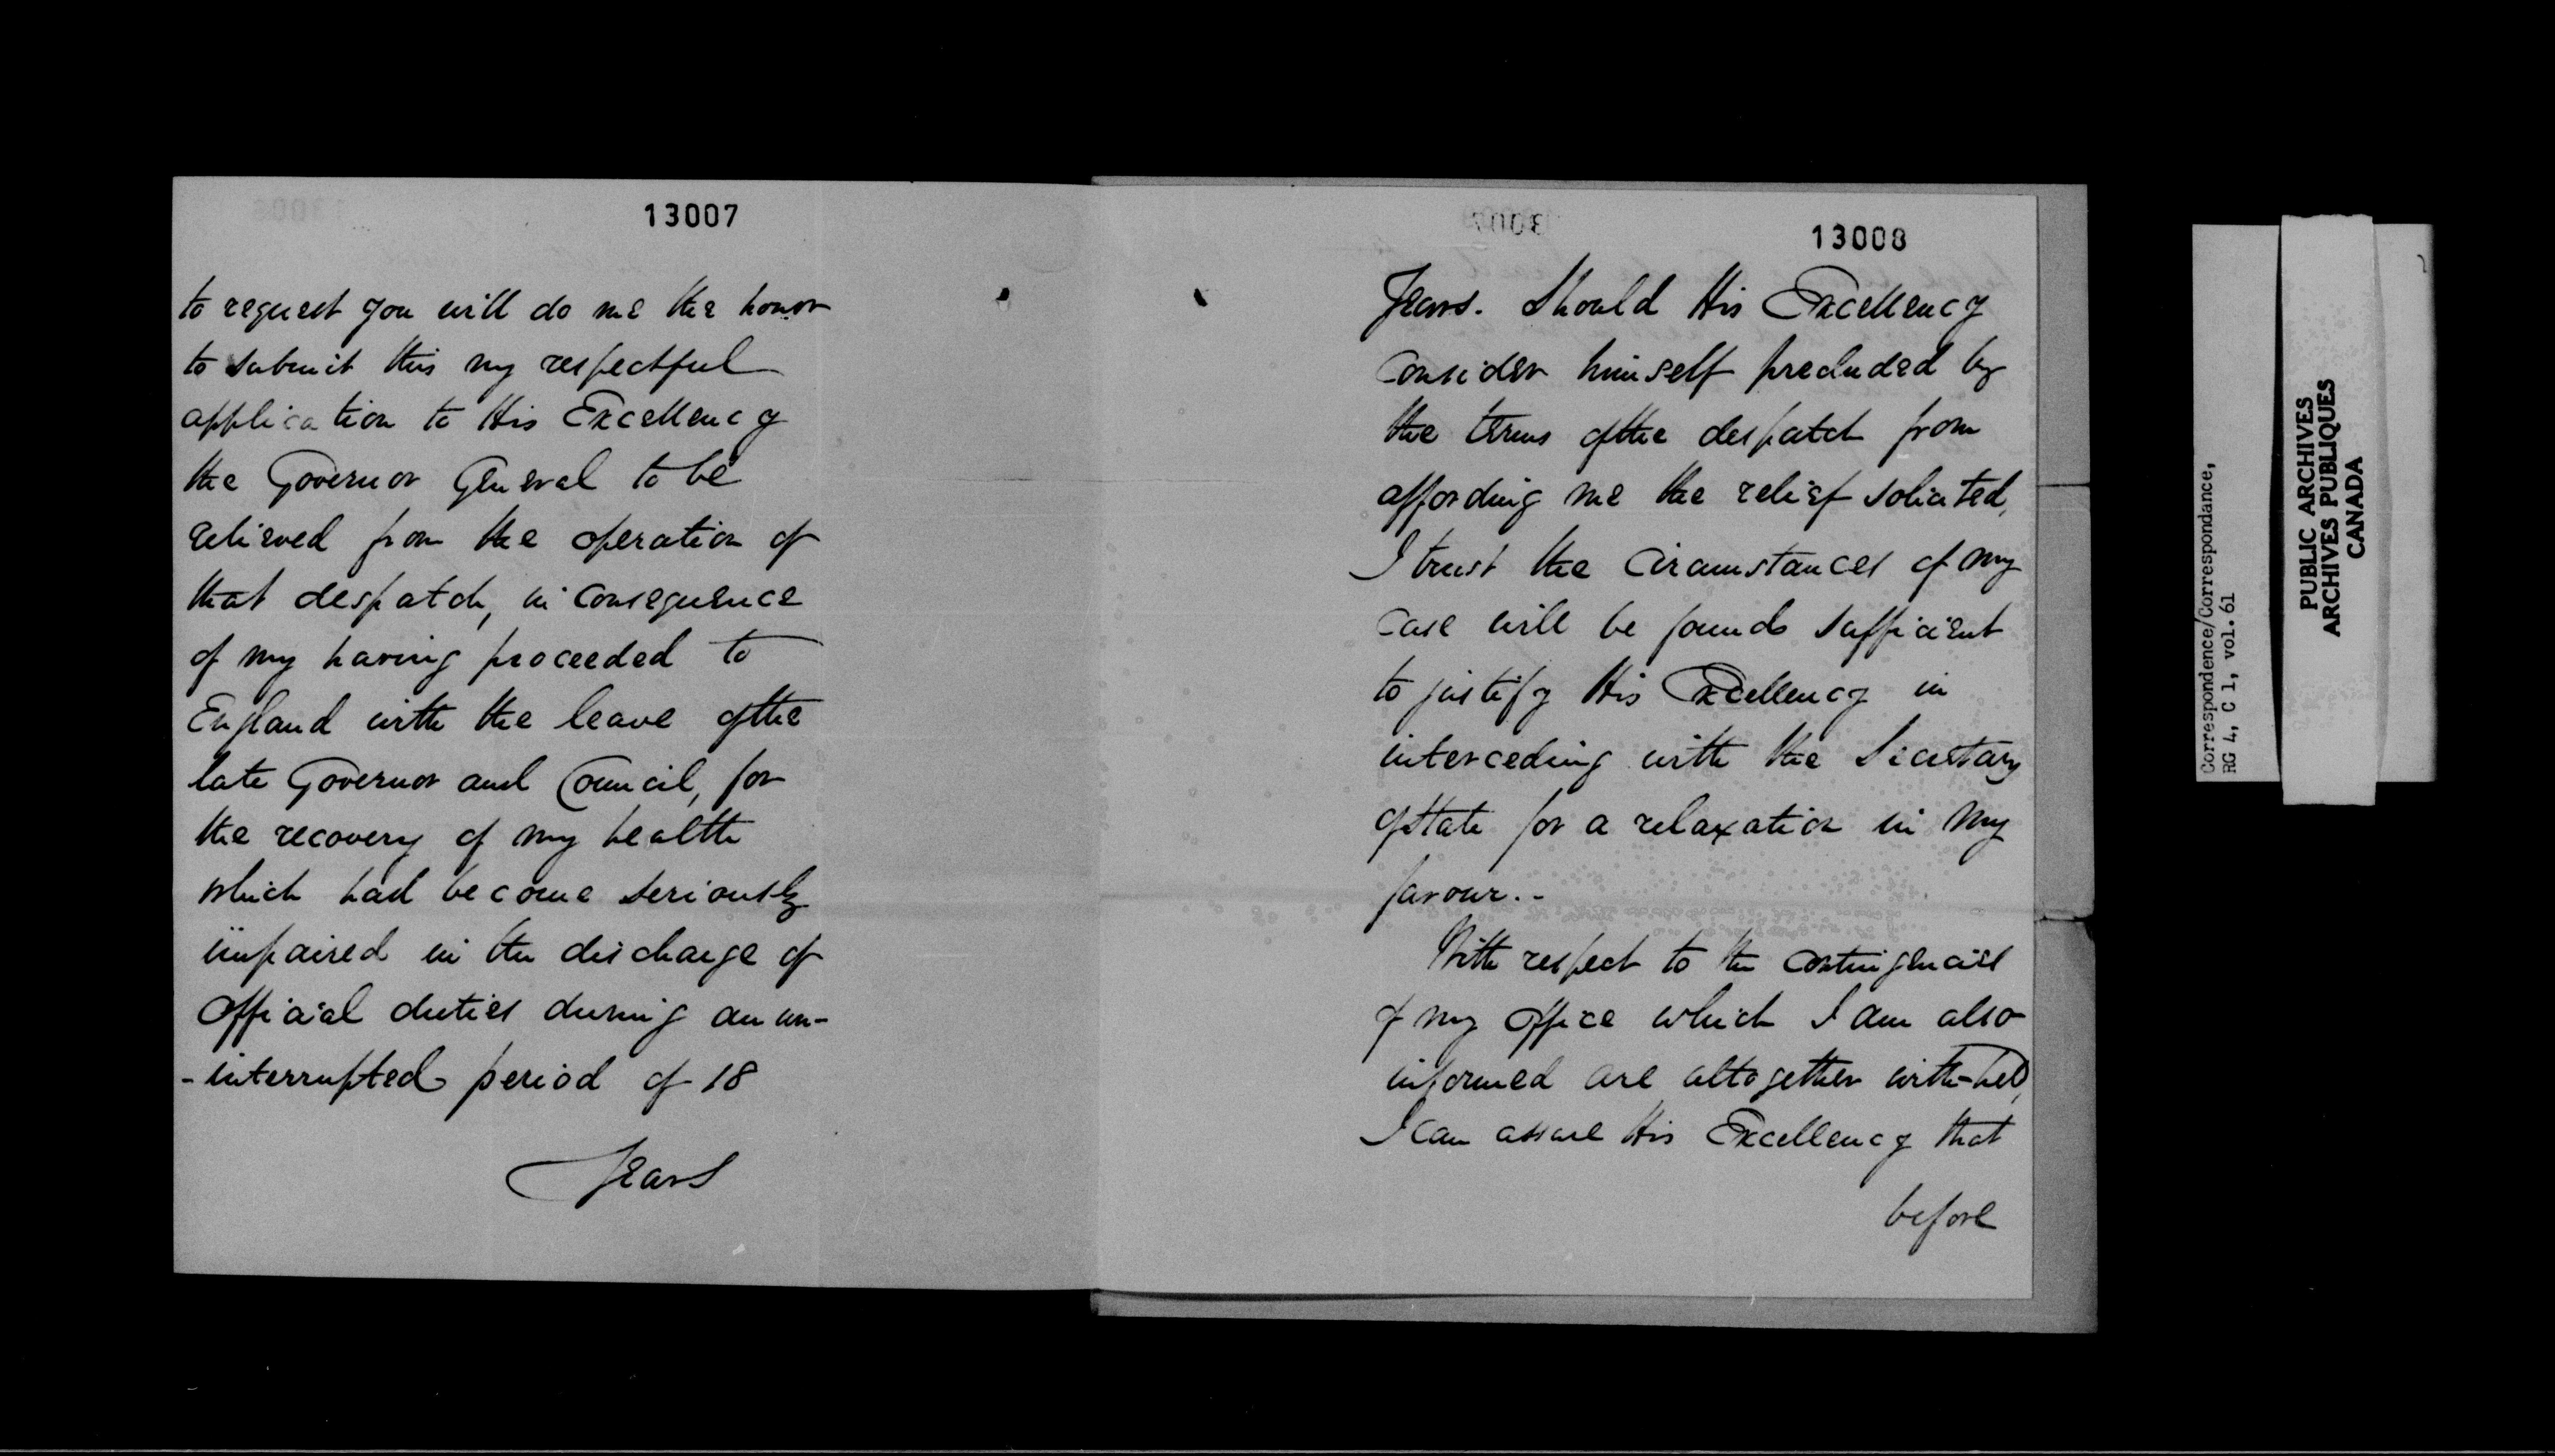 13007
to request you will do me the honor
to submit this my respectful
application to His Excellency
the Governor General to be
relieved from the operation of
that despatch, in consequence
of my having proceeded to
England with the leave of the
late Governor and Council, for
the recovery of my health
which had become seriously
impaired in the discharge of
official duties during an un-
-interrupted period of 18
Years
13008
Years. Should His Excellency
consider himself precluded by
the terms of the despatch from
affording me the relief solicited,
I trust the circumstances of my
case will be found sufficient
to justify His Excellency in
interceding with the Secretary
of State for a relaxation in my
favour.-
With respect to the contingencies
of my office which I am also
informed are altogether with-held,
I can assure His Excellency that
before
Correspondence/Correspondance,
RG 4, C 1, vol. 61
PUBLIC ARCHIVES
ARCHIVES PUBLIQUES
CANADA